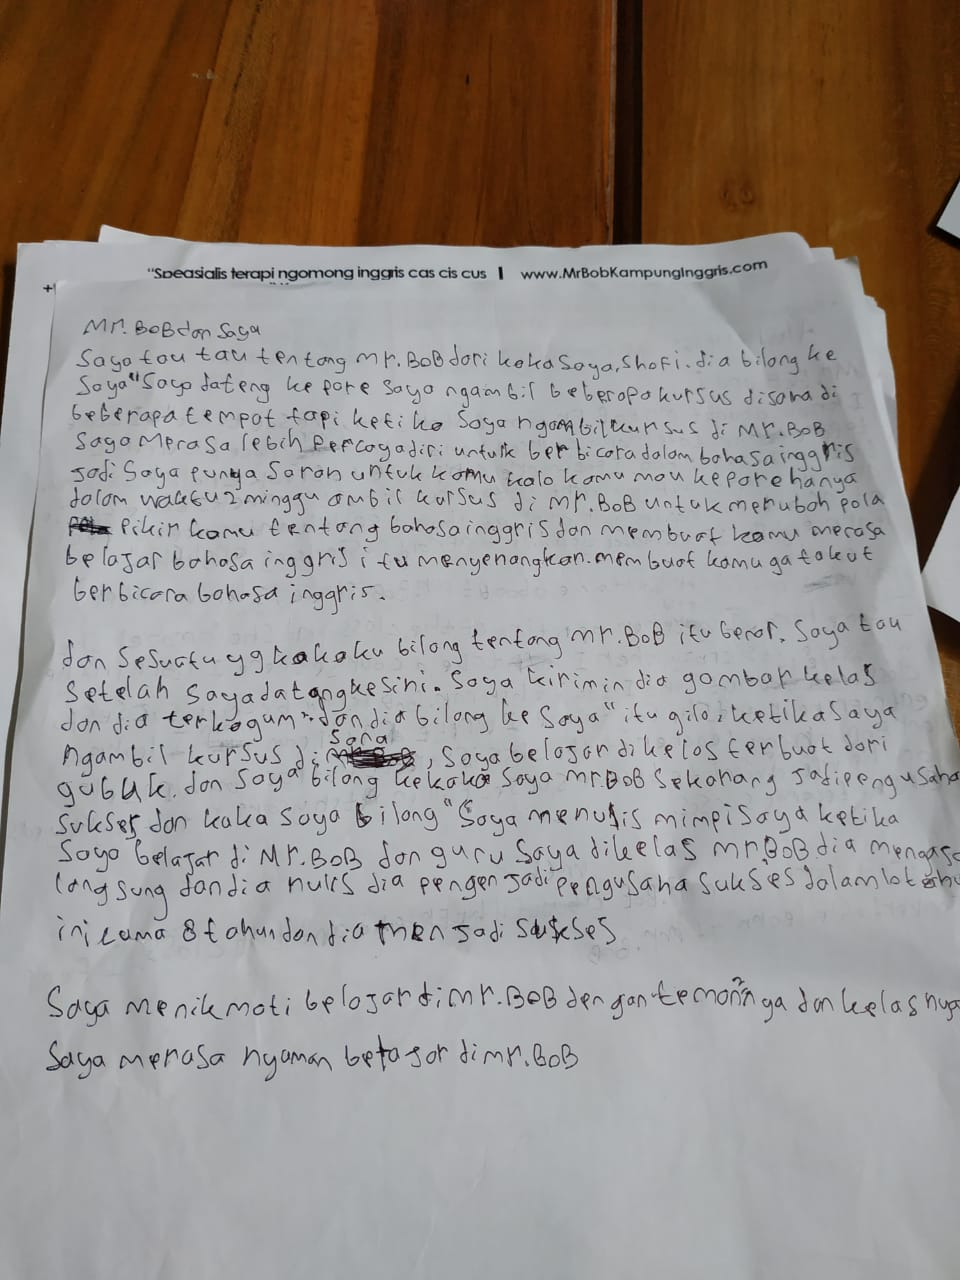 "Speasialis terapi ngomong inggris cas cis cus | www.MrBobKampungInggris.com
Mr. BOB dan Saya
Saya tau tau tentang Mr. BOB dari kaka Saya, Shofi. dia bilang ke
Saya "Saya dateng ke pare saya ngambil beberapa kursus disana di
beberapa tempat tapi ketika Saya ngambil kursus di Mr. BOB
Saya Merasa lebih Percaya diri untuk berbicara dalam bahasa inggris
jadi Saya punya Saran untuk kamu kalo kamu mau ke pare hanya
dalam waktu 2 minggu ambil kursus di Mr. BOB untuk merubah pola
Pikir kamu tentang bahasa inggris dan membuat kamu merasa
belajar bahasa inggris itu menyenangkan. membuat kamu ga takut
berbicara bahasa inggris.
dan Sesuatu yg kakaku bilang tentang Mr. BOB itu benar. Saya tau
Setelah saya datang kesini. Saya kirimin dia gambar kelas
dan dia terkagum" dan dia bilang ke Saya "itu gila, ketika Saya
Ngambil kursus di sana, Saya belajar di kelas terbuat dari
gubuk. dan Saya bilang ke kaka Saya Mr BOB Sekarang Jadi pengusaha
Sukses dan kaka Saya bilang "Saya menulis mimpi Saya ketika
Saya belajar di Mr. BOB dan guru Saya dikelas Mr. BOB dia
langsung dan dia nulis dia pengen Jadi Pengusaha Sukses dalam
ini cuma 8 tahun dan dia menjadi sukses
Saya menikmati belajar di Mr. BOB dengan teman²nya dan kelasnya
Saya merasa nyaman belajar di Mr. BOB